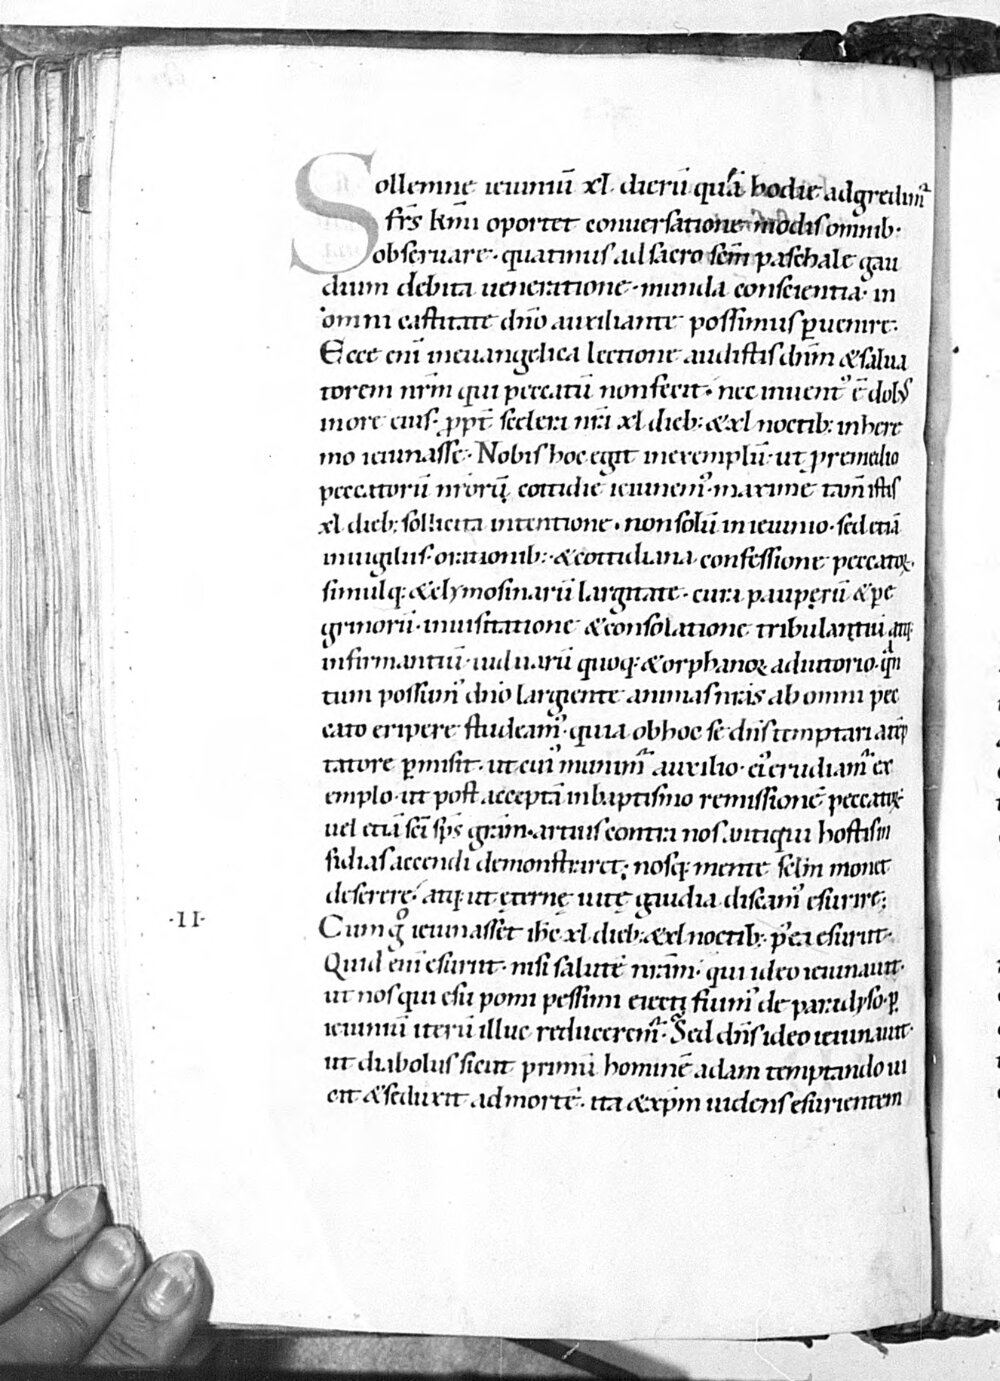 Sollemne ieiuniū xl dierū quā hodie adgredim᷑
fr̄s km̄i oportet conuersatione modis omnib:
obseruare· quatinus ad sacro sc̄m paschale gau
dium debita ueneratione· munda conscientia· in
omni castitate dn̄o auxiliante possimus ꝑuenire·
Ecce eni̅ in euangelica lectione audistis dn̄m &salua
torem nr̄m qui peccatū non fecit· nec inuent᾿ ē dol᾿
in ore eius· ꝓpt̄ scelera nr̄a xl dieb: & xl noctib: in here
mo ieiunasse· Nobis hoc egit in exemplū· ut ꝓ remedio
peccatorū nr̄orų cottidie ieiunem᾿· maxime tam̄ istis
xl dieb; sollicita intentione· non solū in ieiunio· sed etiā
in uigiliis· orationib:· & cottidiana confessione peccatoꝝ·
simulq; & elymosinarū largitate· cura pauperū & pe
grinorū· inuisitatione & consolatione tribulantiū atq;
infirmantiū· uiduarū quoq; & orphanoꝝ adiutorio· qͣn
tum possum᾿ dn̄o largiente animas nr̄as ab omni pec
cato eripere studeam᾿· quia ob hoc se dn̄s temptari a tēp
tatore ꝑmisit· ut cui᾿ munim᷑ auxilio· ei᾿ erudiam᷑ ex
emplo· ut post acceptā in baptismo remissionē peccatoꝝ·
uel etiā sc̄i sp̄s grām· artius contra nos antiqui hostis in
sidias accendi demonstraret; nosq; mente selm̄ monet
deserere· atq; ut ęternę uitę gaudia discam᾿ esurire;
·II·
Cum gͦ ieiunasset ih̄c xl dieb: & xl noctib:· p᾿ea esuriit·
Quid eni̅ esuriit· nisi salutē nr̄am· qui ideo ieiunauit·
ut nos qui esu pomi pessimi eiecti fuim᾿ de paradyso· ꝑ
ieiuniū iterū illuc reducerem᷑· Sed dn̄s ideo ieiunauit·
ut diabolus sicut primū hominē adam temptando ui
cit & seduxit ad mortē· ita & xp̄m uidens esurientem